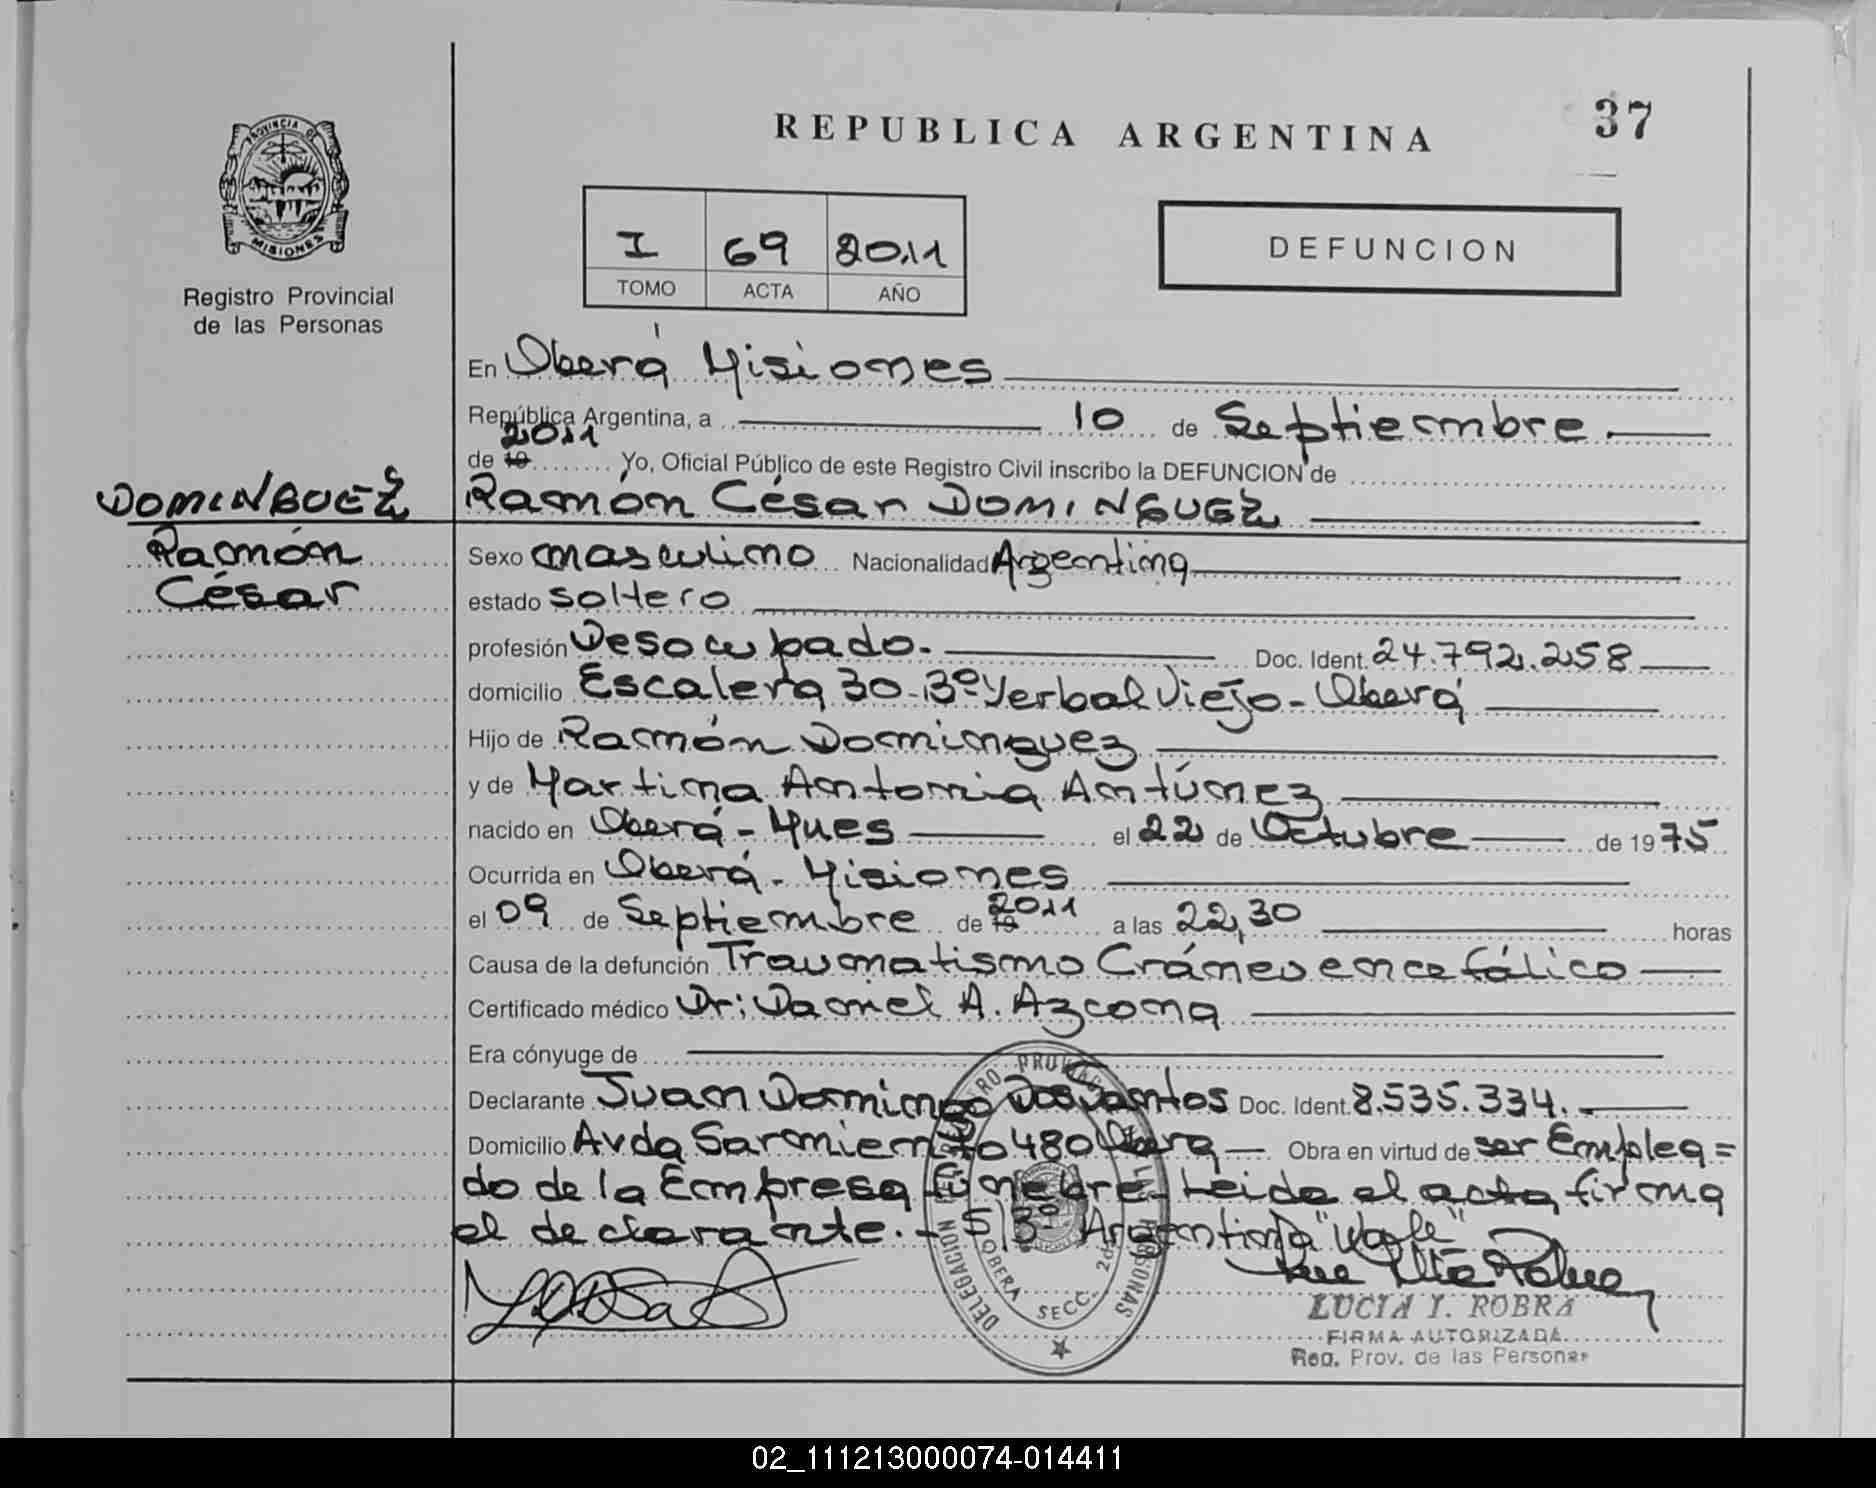 REPUBLICA ARGENTINA
37
PROVINCIA DE
MISIONES
Registro Provincial
de las Personas
I 69 2011
TOMO ACTA AÑO
DEFUNCION
En Oberá Misiones
República Argentina, a 10 de Septiembre.
2011
de 19 Yo, Oficial Público de este Registro Civil inscribo la DEFUNCION de
DOMINGUEZ
Ramón César DOMINGUEZ
Ramón
César
Sexo masculino Nacionalidad Argentina
estado soltero
profesión Desocupado. Doc. Ident. 24.792.258
domicilio Escalera 30-Bº Yerbal Viejo - Oberá
Hijo de Ramón Dominguez
y de Martina Antonia Antúnez
nacido en Oberá - Mnes el 22 de Octubre de 1975
Ocurrida en Oberá - Misiones
el 09 de Septiembre de 19 2011 a las 22,30 horas
Causa de la defunción Traumatismo Cráneo encefálico
Certificado médico Dr: Daniel A. Azcona
Era cónyuge de
Declarante Juan Domingo Dos Santos Doc. Ident. 8.535.334.
Domicilio Avda Sarmiento 480 Oberá Obra en virtud de ser Emplea=
do de la Empresa fúnebre - Leida el acta firma
el declarante. - S/Bº Argentina
DELEGACION REGISTRO PROVINCIAL DE LAS PERSONAS
OBERA SECC. 2da
LUCIA I. ROBRA
FIRMA AUTORIZADA
Reg. Prov. de las Personas
02_111213000074-014411